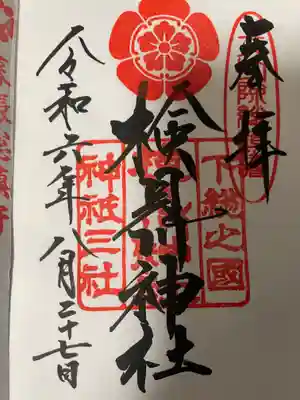 奉拝
下総之國
検見川神社
神祇三社
令和六年八月二十七日